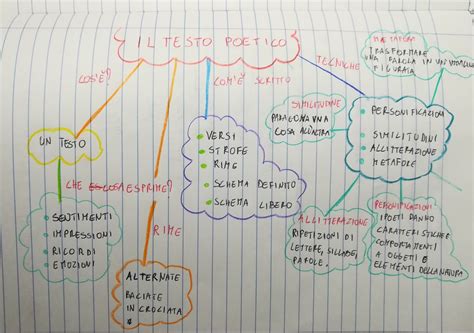 IL TESTO POETICO
COS'È?
COM'È SCRITTO
TECNICHE
METAFORA
TRASFORMARE
UNA PAROLA IN UN
FIGURATA
SIMILITUDINE
PARAGONA UNA
COSA ALL'ALTRA
PERSONIFICAZIONI
SIMILITUDINI
ALLITTERAZIONE
METAFORE
UN TESTO
VERSI
STROFE
RIME
SCHEMA DEFINITO
SCHEMA LIBERO
CHE COSA ESPRIME?
SENTIMENTI
IMPRESSIONI
RICORDI
EMOZIONI
RIME
ALTERNATE
BACIATE
INCROCIATA
ALLITTERAZIONE
RIPETIZIONI DI
LETTERE, SILLABE,
PAROLE.
PERSONIFICAZIONI
I POETI DANNO
CARATTERISTICHE
COMPORTAMENTI
A OGGETTI E
ELEMENTI DELLA NATURA